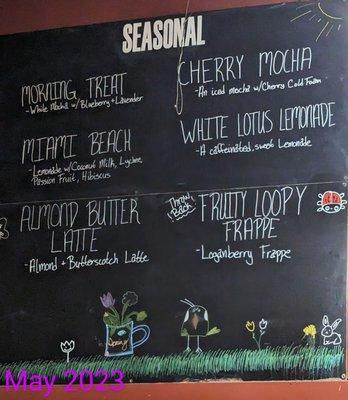 SEASONAL
MORNING TREAT
- White Mocha w/ Blueberry + Lavender
MIAMI BEACH
- Lemonade w/ Coconut Milk, Lychee,
Passion Fruit, Hibiscus
CHERRY MOCHA
- An iced mocha w/ Cherry Cold Foam
WHITE LOTUS LEMONADE
- A caffeinated, sweet Lemonade
ALMOND BUTTER
LATTE
- Almond + Butterscotch Latte
Throw
Back
FRUITY LOOPY
FRAPPE
- Loganberry Frappe
Spring
May 2023